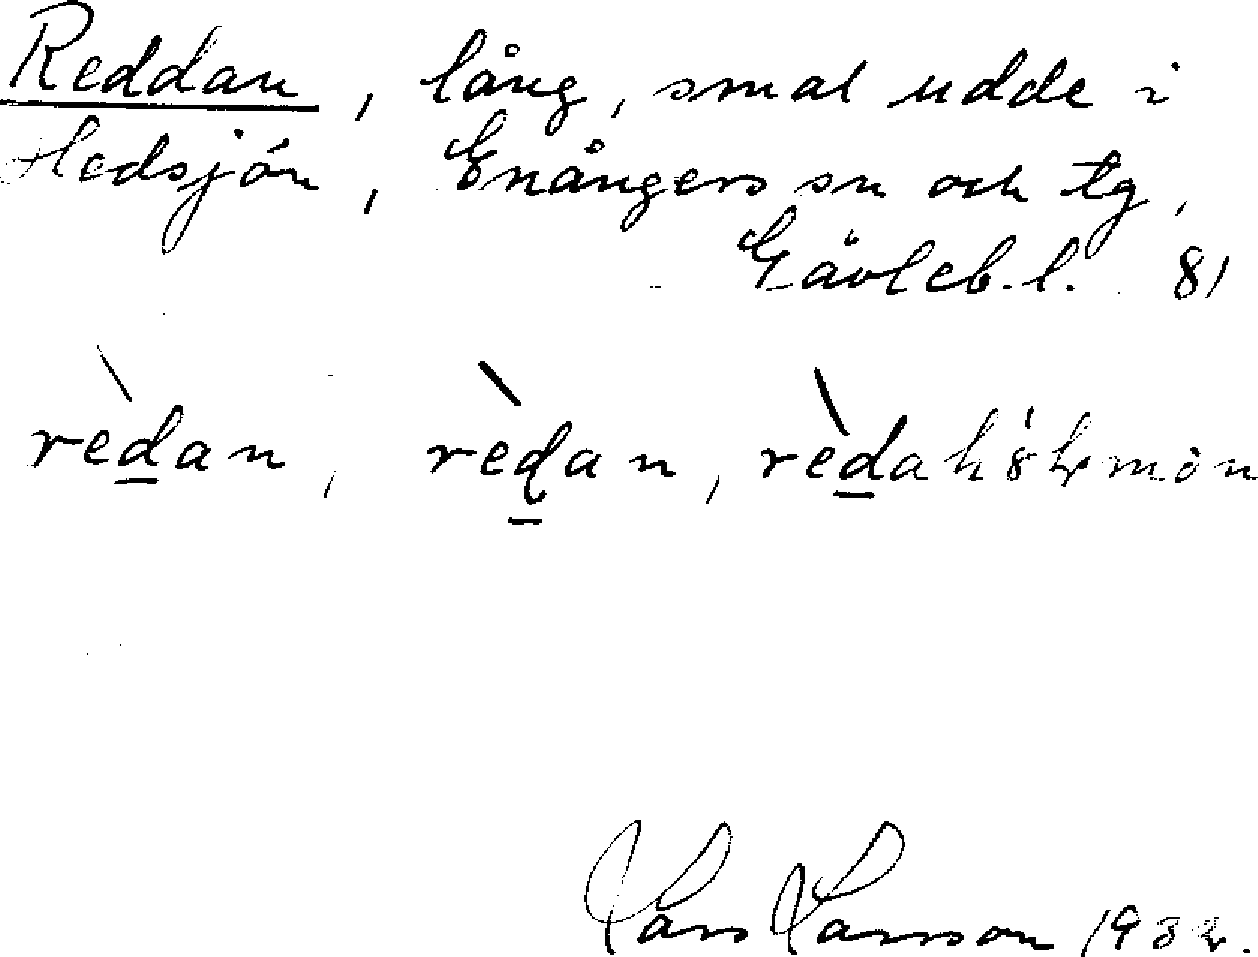 Reddan, lång, smal udde i
Hedsjön, Enångers sn och tg,
Gävleb. l. 81
rèdan, rèdan,
Lars Larsson 1932.